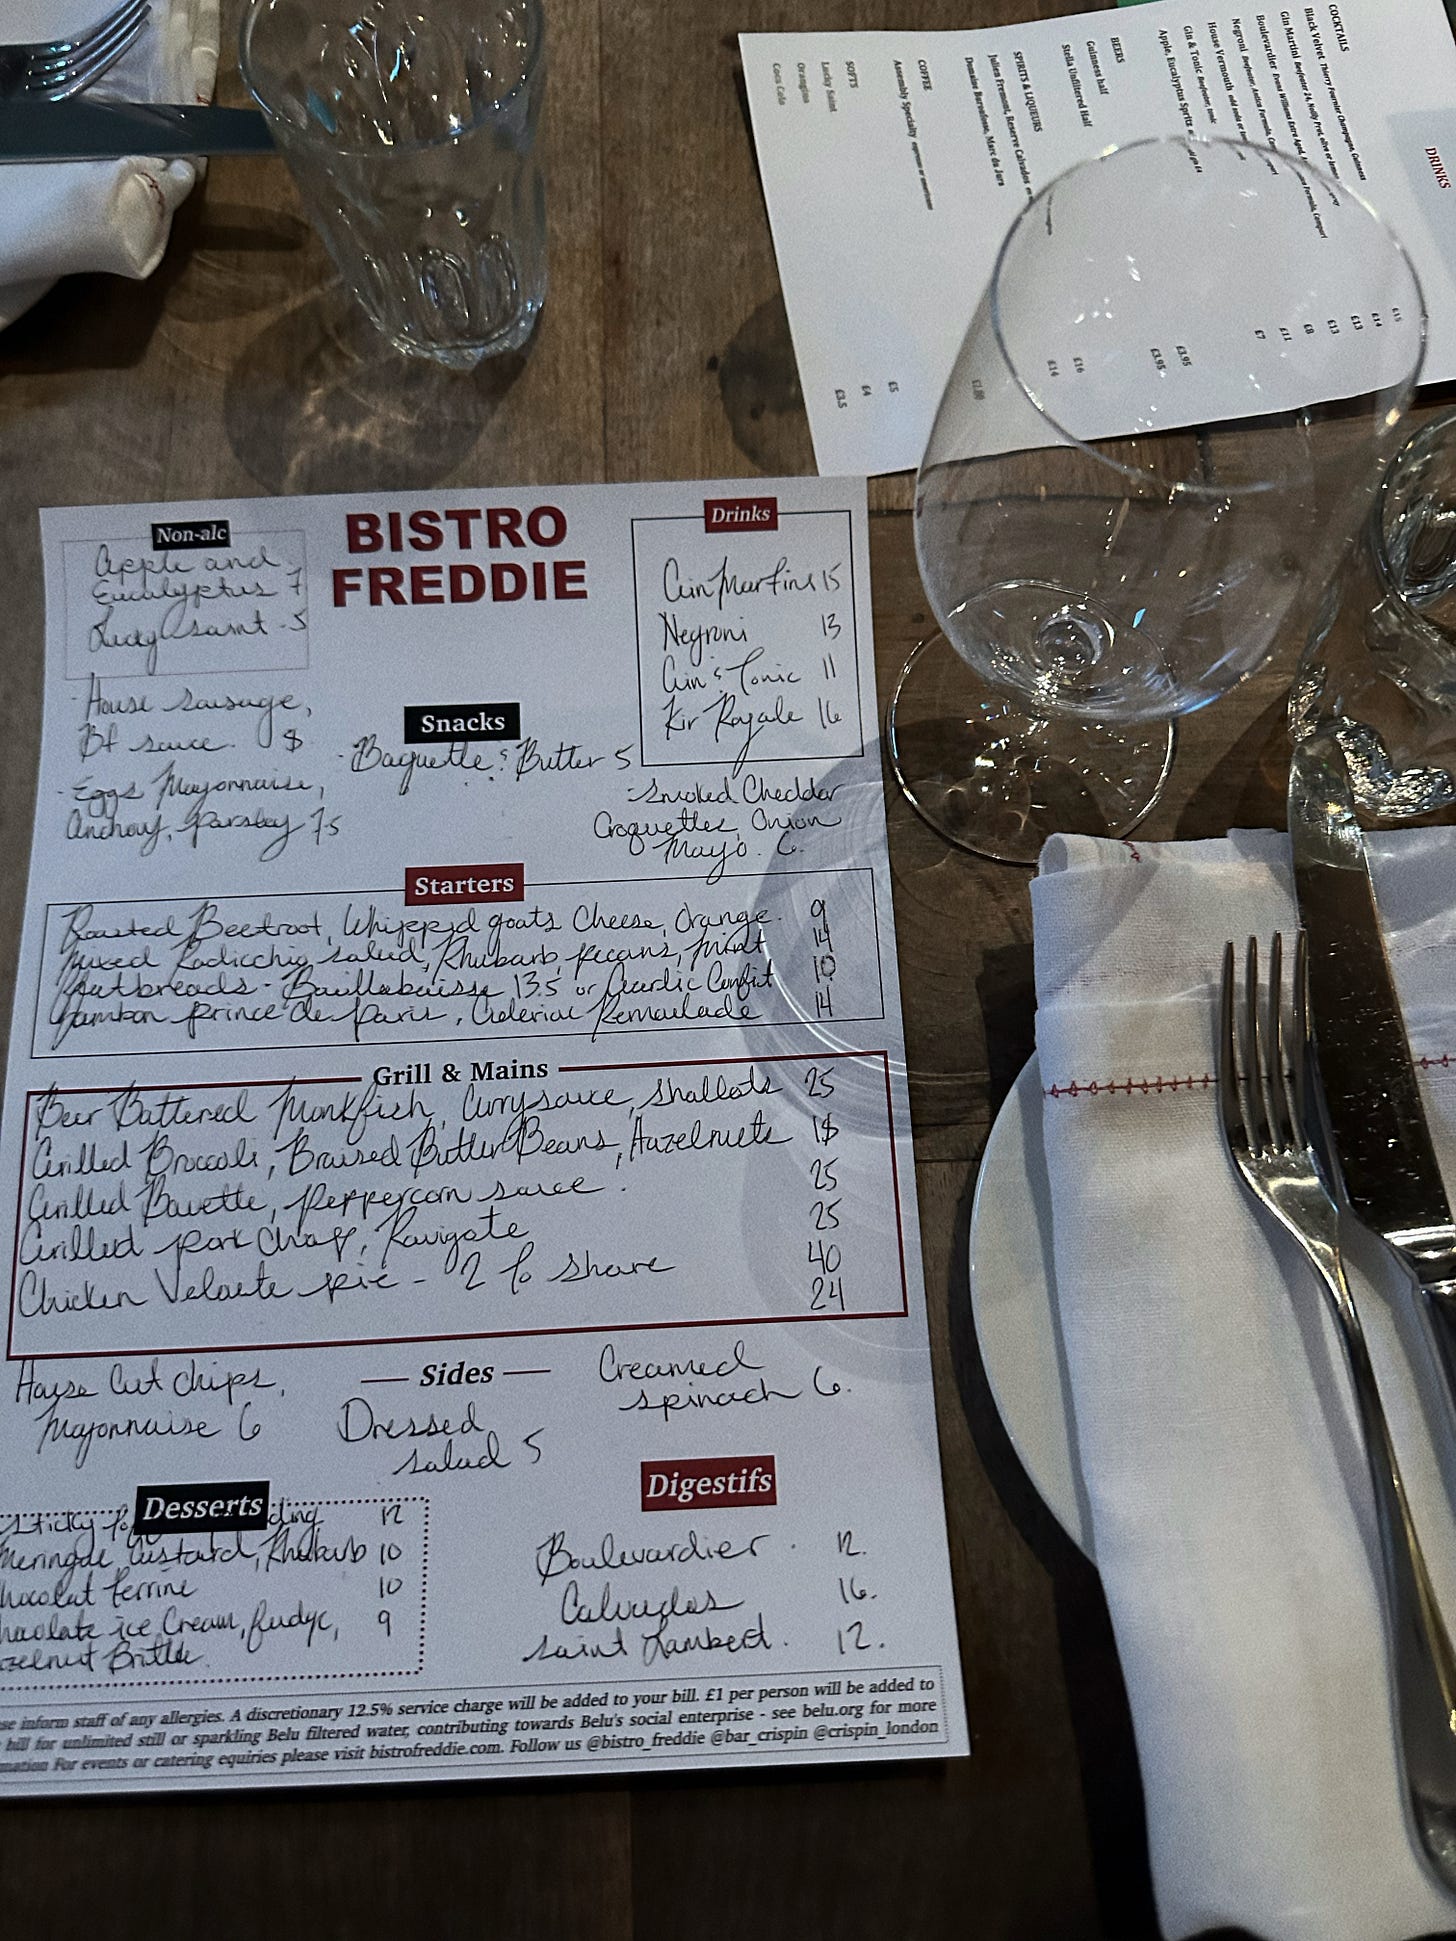 DRINKS
COCKTAILS
Black Velvet Thierry Fournier Champagne, Guinness £15
Gin Martini Beefeater 24, Noilly Prat, olive or lemon £14
Boulevardier Evans Williams Extra Aged, Formula, Campari £13
Negroni Beefeater, Antica Formula, £13
House Vermouth add soda or £8
Gin & Tonic Beefeater, tonic £11
Apple, Eucalyptus Spritz £7
BEERS
Guinness half £3.95
Stella Unfiltered Half £3.95
SPIRITS & LIQUEURS
Julien Fremont, Reserve Calvados £16
Domaine Baronfosse, Marc du Jura £14
COFFEE
Assembly Specialty espresso or americano
SOFTS
Lucky Saint £5
Orangina £4
Coca Cola £3.5
Non-alc
Apple and
Eucalyptus 7
Lucy Saint - 5
BISTRO
FREDDIE
Drinks
Gin Martini 15
Negroni 13
Gin & Tonic 11
Kir Royale 16
Snacks
- House Sausage,
Bf sauce. 8
- Baguette & Butter 5
- Eggs Mayonnaise,
Anchovy, Parsley 7.5
- Smoked Cheddar
Croquettes, Onion
Mayo. 6.
Starters
Roasted Beetroot, Whipped goats Cheese, Orange. 9
Mixed Radicchio salad, Rhubarb, pecans, Mint 14
Flatbreads - Bouillabaisse 13.5 or Garlic Confit 10
Jambon Prince de Paris, Celeriac Remoulade 14
Grill & Mains
Beer Battered Monkfish, Curry sauce, Shallots 25
Grilled Broccoli, Braised Butter Beans, Hazelnuts 18
Grilled Bavette, peppercorn sauce. 25
Grilled pork Chop, Ravigote 25
Chicken Veloute pie - 2 to share 40
24
Sides
House Cut chips,
Mayonnaise 6
Dressed
salad 5
Creamed
spinach 6.
Desserts
Sticky ding 12
Meringue, Custard, Rhubarb 10
hocolat Terrine 10
hocolate ice Cream, fudge, 9
zelnut Brittle.
Digestifs
Boulevardier. 12.
Calvados 16.
Saint Lambert. 12.
se inform staff of any allergies. A discretionary 12.5% service charge will be added to your bill. £1 per person will be added to
bill for unlimited still or sparkling Belu filtered water, contributing towards Belu's social enterprise - see belu.org for more
mation For events or catering equiries please visit bistrofreddie.com. Follow us @bistro_freddie @bar_crispin @crispin_london